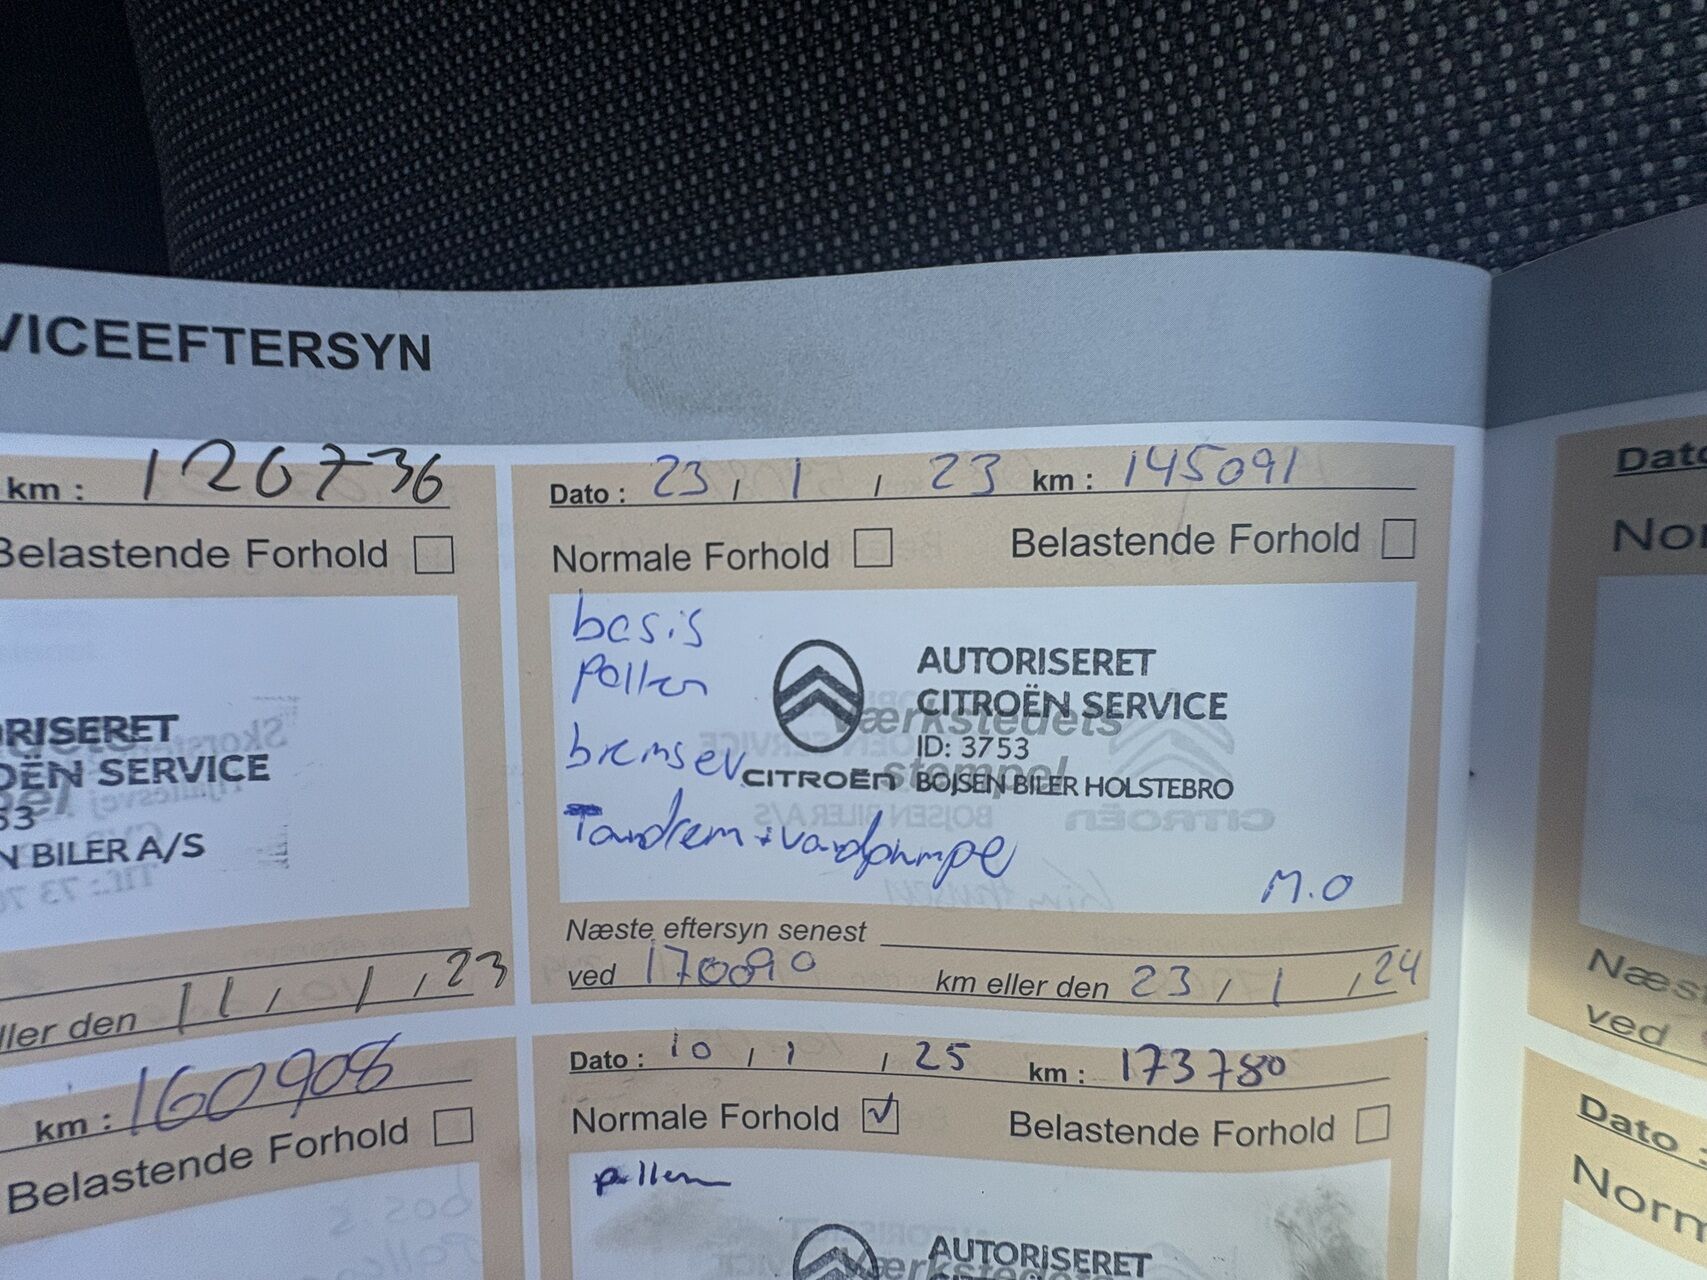 VICEEFTERSYN
km : 120736
Belastende Forhold
ORISERET
OËN SERVICE
53
N BILER A/S
ller den 11, 1, 23
Dato : 23, 1, 23 km : 145091
Normale Forhold Belastende Forhold
basis
pollen
bremsev
Tandrem + vandpumpe
AUTORISERET
CITROËN SERVICE
Værkstedets
ID: 3753
stempel
CITROËN BOJSEN BILER HOLSTEBRO
M.O
Næste eftersyn senest
ved 170090 km eller den 23, 1, 24
km : 160908
Belastende Forhold
Dato : 10, 1, 25 km : 173780
Normale Forhold Belastende Forhold
pollen
AUTORISERET
Værkstedets
Dato
Nor
Næs
ved
Dato :
Norm